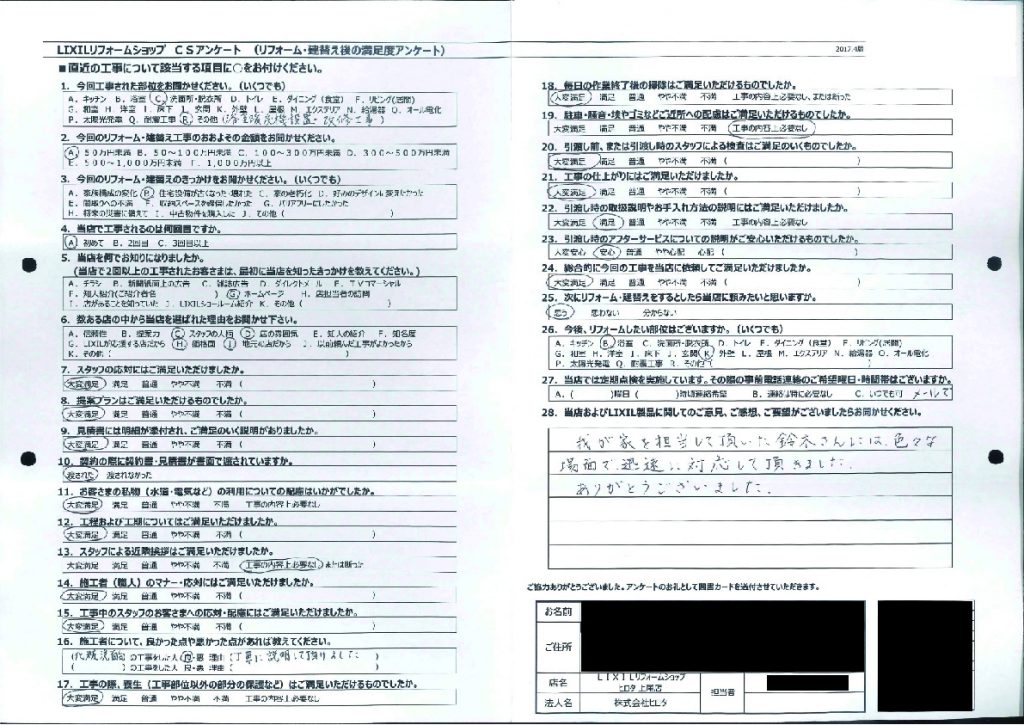 LIXILリフォームショップ CSアンケート （リフォーム・建替え後の満足度アンケート）
■直近の工事について該当する項目に○をお付けください。
1．今回工事された部位をお聞かせください。（いくつでも）
A．キッチン B．浴室 C．洗面所・脱衣所 D．トイレ E．ダイニング（食堂） F．リビング(居間)
G．和室 H．洋室 I．廊下 J．玄関 K．外壁 L．屋根 M．エクステリア N．給湯器 O．オール電化
P．太陽光発電 Q．耐震工事 R．その他（浴室暖房機設置・改修工事）
2．今回のリフォーム・建替え工事のおおよその金額をお聞かせください。
A．50万円未満 B．50～100万円未満 C．100～300万円未満 D．300～500万円未満
E．500～1,000万円未満 F．1,000万円以上
3．今回のリフォーム・建替えのきっかけをお聞かせください。（いくつでも）
A．家族構成の変化 B．住宅設備が古くなった・壊れた C．家の老朽化 D．好みのデザインに変えたかった
E．間取りへの不満 F．収納スペースを確保したかった G．バリアフリーにしたかった
H．将来の災害に備えて I．中古物件を購入した J．その他（ ）
4．当店で工事されるのは何回目ですか。
A．初めて B．2回目 C．3回目以上
5．当店を何でお知りになりましたか。
（当店で2回以上の工事されたお客さまは、最初に当店を知ったきっかけを教えてください。）
A．チラシ B．新聞紙面上の広告 C．雑誌広告 D．ダイレクトメール E．TVコマーシャル
F．知人紹介(ご紹介者名 ) G．ホームページ H．店担当者の訪問
I．店があることを知っていた J．LIXILショールーム紹介 K．その他（ ）
6．数ある店の中から当店を選ばれた理由をお聞かせ下さい。
A．信頼性 B．提案力 C．スタッフの人柄 D．店の雰囲気 E．知人の紹介 F．知名度
G．LIXILが応援する店だから H．価格面 I．地元の店だから J．以前頼んだ工事がよかったから
K．その他（ ）
7．スタッフの応対にはご満足いただけましたか。
大変満足 満足 普通 やや不満 不満 （ ）
8．提案プランはご満足いただけるものでしたか。
大変満足 満足 普通 やや不満 不満 （ ）
9．見積書には明細が添付され、ご満足のいく説明がありましたか。
大変満足 満足 普通 やや不満 不満 （ ）
10．契約の際に契約書・見積書が書面で渡されていますか。
渡された 渡されなかった
11．お客さまの私物（水道・電気など）の利用についての配慮はいかがでしたか。
大変満足 満足 普通 やや不満 不満 工事の内容上必要なし
12．工程および工期についてはご満足いただけましたか。
大変満足 満足 普通 やや不満 不満 （ ）
13．スタッフによる近隣挨拶はご満足いただけましたか。
大変満足 満足 普通 やや不満 不満 工事の内容上必要なし または断った
14．施工者（職人）のマナー・応対にはご満足いただけましたか。
大変満足 満足 普通 やや不満 不満 （ ）
15．工事中のスタッフのお客さまへの応対・配慮にはご満足いただけましたか。
大変満足 満足 普通 やや不満 不満 （ ）
16．施工者について、良かった点や悪かった点があれば教えてください。
（化粧洗面 の工事をした人 良・悪 理由（丁寧に説明して頂けました ）
（ の工事をした人 良・悪 理由（ ）
17．工事の際、養生（工事部位以外の部分の保護など）はご満足いただけるものでしたか。
大変満足 満足 普通 やや不満 不満 工事の内容上必要なし
2017.4版
18．毎日の作業終了後の掃除はご満足いただけるものでしたか。
大変満足 満足 普通 やや不満 不満 工事の内容上必要なし、または断った
19．駐車・騒音・埃やゴミなどご近所への配慮はご満足いただけるものでしたか。
大変満足 満足 普通 やや不満 不満 工事の内容上必要なし
20．引渡し前、または引渡し時のスタッフによる検査はご満足のいくものでしたか。
大変満足 満足 普通 やや不満 不満 （ ）
21．工事の仕上がりにはご満足いただけましたか。
大変満足 満足 普通 やや不満 不満 （ ）
22．引渡し時の取扱説明やお手入れ方法の説明にはご満足いただけましたか。
大変満足 満足 普通 やや不満 不満 工事の内容上必要なし
23．引渡し時のアフターサービスについての説明がご安心いただけるものでしたか。
大変安心 安心 普通 やや心配 心配（ ）
24．総合的に今回の工事を当店に依頼してご満足いただけましたか。
大変満足 満足 普通 やや不満 不満 （ ）
25．次にリフォーム・建替えをするとしたら当店に頼みたいと思いますか。
思う 思わない 分からない
26．今後、リフォームしたい部位はございますか。（いくつでも）
A．キッチン B．浴室 C．洗面所・脱衣所 D．トイレ E．ダイニング（食堂） F．リビング(居間)
G．和室 H．洋室 I．廊下 J．玄関 K．外壁 L．屋根 M．エクステリア N．給湯器 O．オール電化
P．太陽光発電 Q．耐震工事 R．その他（ ）
27．当店では定期点検を実施しています。その際の事前電話連絡のご希望曜日・時間帯はございますか。
A．（ ）曜日（ ）時頃連絡希望 B．連絡は特に必要なし C．いつでも可 メールで
28．当店およびLIXIL製品に関してのご意見、ご感想、ご要望がございましたらお聞かせください。
我が家を担当して頂いた鈴木さんには、色々な
場面で迅速に対応して頂きました.
ありがとうございました.
ご協力ありがとうございました。アンケートのお礼として図書カードを送付させていただきます。
お名前
ご住所
店名 LIXILリフォームショップ ヒロタ 上尾店 担当者
法人名 株式会社ヒロタ